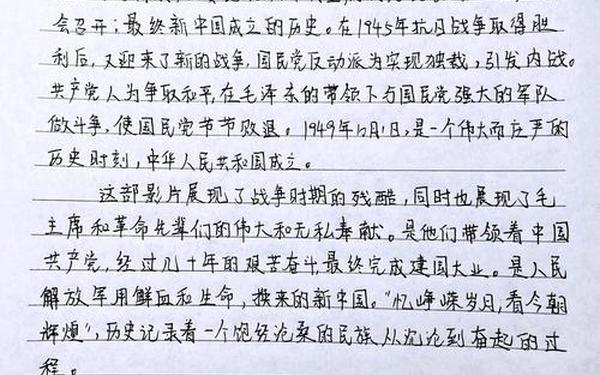 会召开;最终新中国成立的历史。在1945年抗日战争取得胜
利后,又迎来了新的战争,国民党反动派为实现独裁,引发内战。
共产党人为争取和平,在毛泽东的带领下与国民党强大的军队
做斗争,使国民党节节败退。1949年10月1日,是一个伟大而庄严的
历史时刻,中华人民共和国成立。
这部影片展现了战争时期的残酷,同时也展现了毛
主席和革命先辈们的伟大和无私奉献。是他们带领着中国
共产党,经过几十年的艰苦奋斗,最终完成建国大业。是人民
解放军用鲜血和生命,换来的新中国。“忆峥嵘岁月,看今朝
辉煌”,历史记录着一个饱经沧桑的民族从沉沦到奋起的过
程。